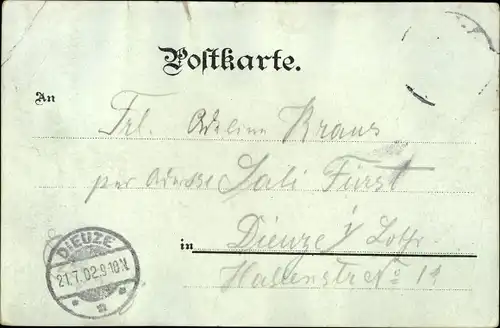 Postkarte.
An
Frl. Adeline Kraus
per Adresse Sali Fürst
in Dieuze i/ Lothr.
No 19
DIEUZE
21.7.02.9-10.V.